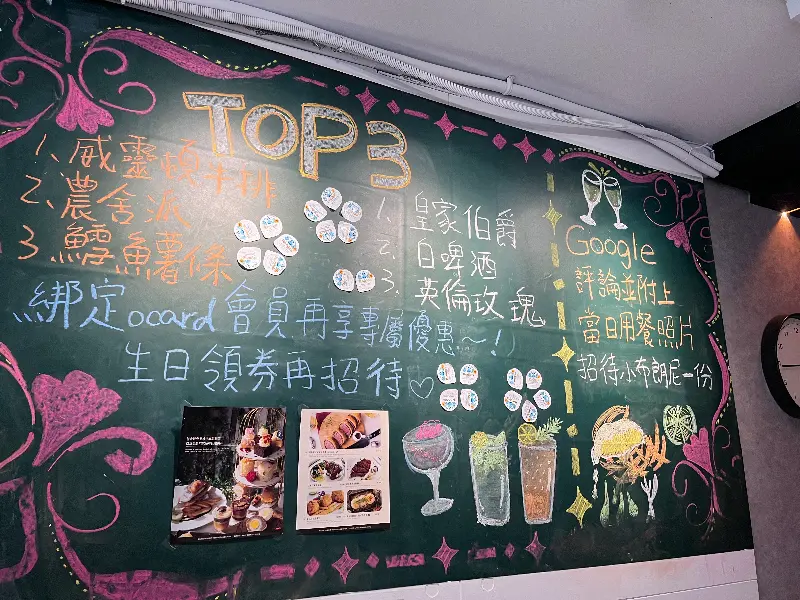 TOP 3
1、威靈頓牛排
2、農舍派
3、鱈魚薯條
1. 皇家伯爵
2. 白啤酒
3. 英倫玫瑰
綁定ocard會員再享專屬優惠~!
生日領券再招待♡
Google
評論並附上
當日用餐照片
招待小布朗尼一份